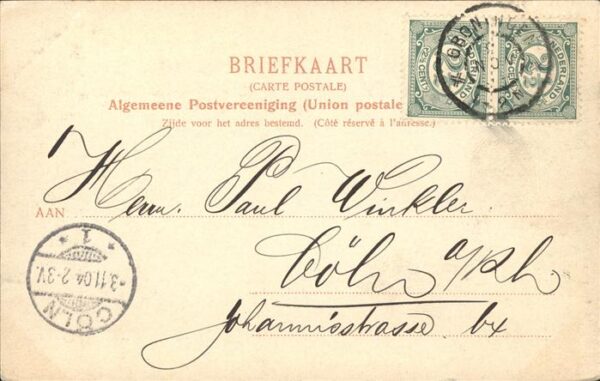 BRIEFKAART
(CARTE POSTALE)
Algemeene Postvereeniging (Union postale
Zijde voor het adres bestemd. (Côté réservé à l'adresse.)
GRONINGEN
NEDERLAND
2½
(2½ CENT)
AAN
Herrn Paul Winkler
Cöln a/Rh
Johannisstrasse
CÖLN
* 1 *
3.11.04.2-3V.